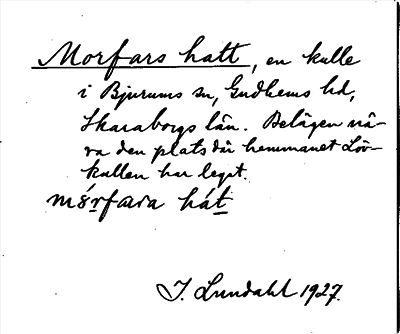 Morfars hatt, en kulle
i Bjurums sn, Gudhems hd,
Skaraborgs län. Belägen nä-
ra den plats där hemmanet Löv-
kullen har legat.
mórfara hát
I. Lundahl 1927.